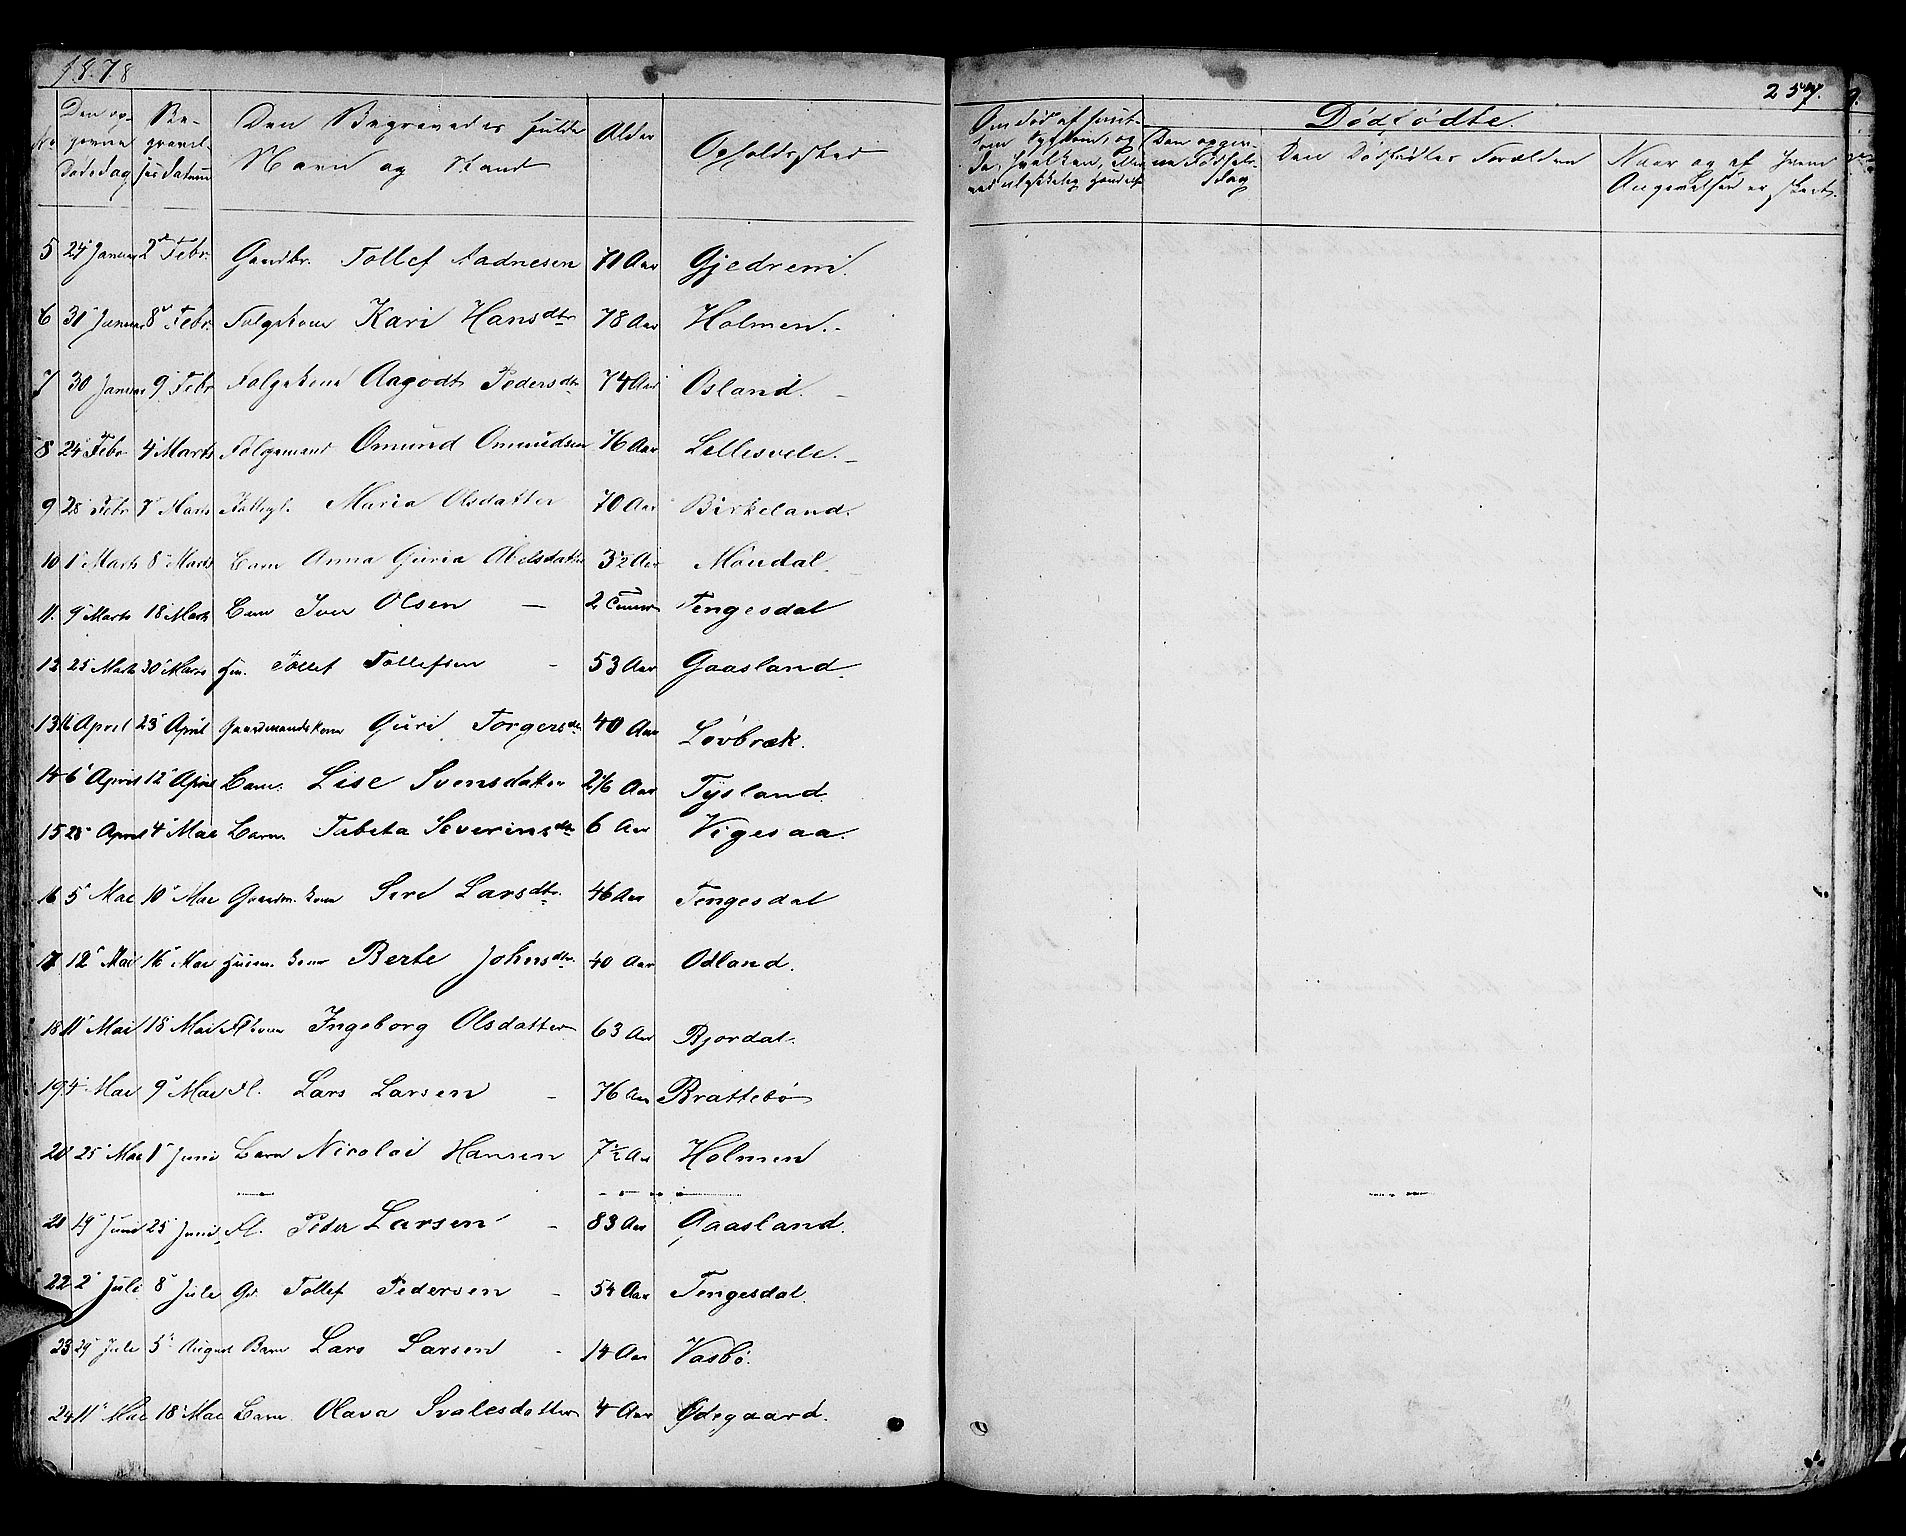 1878
257.
No
Den op-
givne
Dødsdag
Be-
gravel-
sesdatum
Den Begravedes fulde
Navn og Stand
Alder
Opholdssted
Om død af smit-
som Sygdom, og
da hvilken, eller
ved ulykkelig Hændelse
Dødfødte.
Den opgiv-
ne Fødsels-
dag
Den Dødfødtes Forældre
Naar og af hvem
Angivelsen er skeet.
5 24 Januar 2 Febr. Gaardbr. Tollef Aadnesen 71 Aar Gjedrem.
6 31 Januar 8 Febr. Folgekone Kari Hansdtr 78 Aar Holmen.
7 30 Januar 9 Febr Folgekone Aagodt Pedersdtr 74 Aar Osland.
8 24 Febr 4 Marts Folgemand Omund Omundsen 76 Aar Lellesvele.
9 28 Febr 7 Marts Maria Olsdatter 70 Aar Birkeland.
10 1 Marts 8 Marts Barn Anna Guria Abelsdatter 3½ Aar Mondal.
11. 9 Marts 18 Marts Barn Iver Olsen — 2 Timer Tengesdal
12 25 Marts 30 Marts Hm. Tollef Tollefsen - 53 Aar Gaasland.
13 16 April 23 April Gaardmandskone Guri Torgersdtr 40 Aar Løvbræk.
14 6 April 12 April Barn. Lise Svensdatter 2 1/6 Aar Tysland.
15 28 April 4 Mai Barn. Tabeta Severinsdtr 6 Aar Vigesaa.
16 5 Mai 10 Mai Gaardm. kone Siri Larsdtr. 46 Aar Tengesdal
17 12 Mai 16 Mai Husm. kone Berte Johnsdtr. 40 Aar Odland.
18 11 Mai 18 Mai Fl kone Ingeborg Olsdatter 63 Aar Bjordal.
19 4 Mai 9 Mai Fl. Lars Larsen - 76 Aar Brattebø
20 25 Mai 1 Juni Barn Nicolai Hansen 7½ Aar Holmen
21 19 Juni 25 Juni Fl. Peder Larsen - 83 Aar Gaasland.
22 2 Juli 8 Juli Gr. Tollef Pedersen - 54 Aar Tengesdal.
23 29 Juli 5 August Barn Lars Larsen - 14 Aar Vasbø.
24 11 Mai 18 Mai Barn. Olava Svalesdatter 4 Aar Ødegaard.